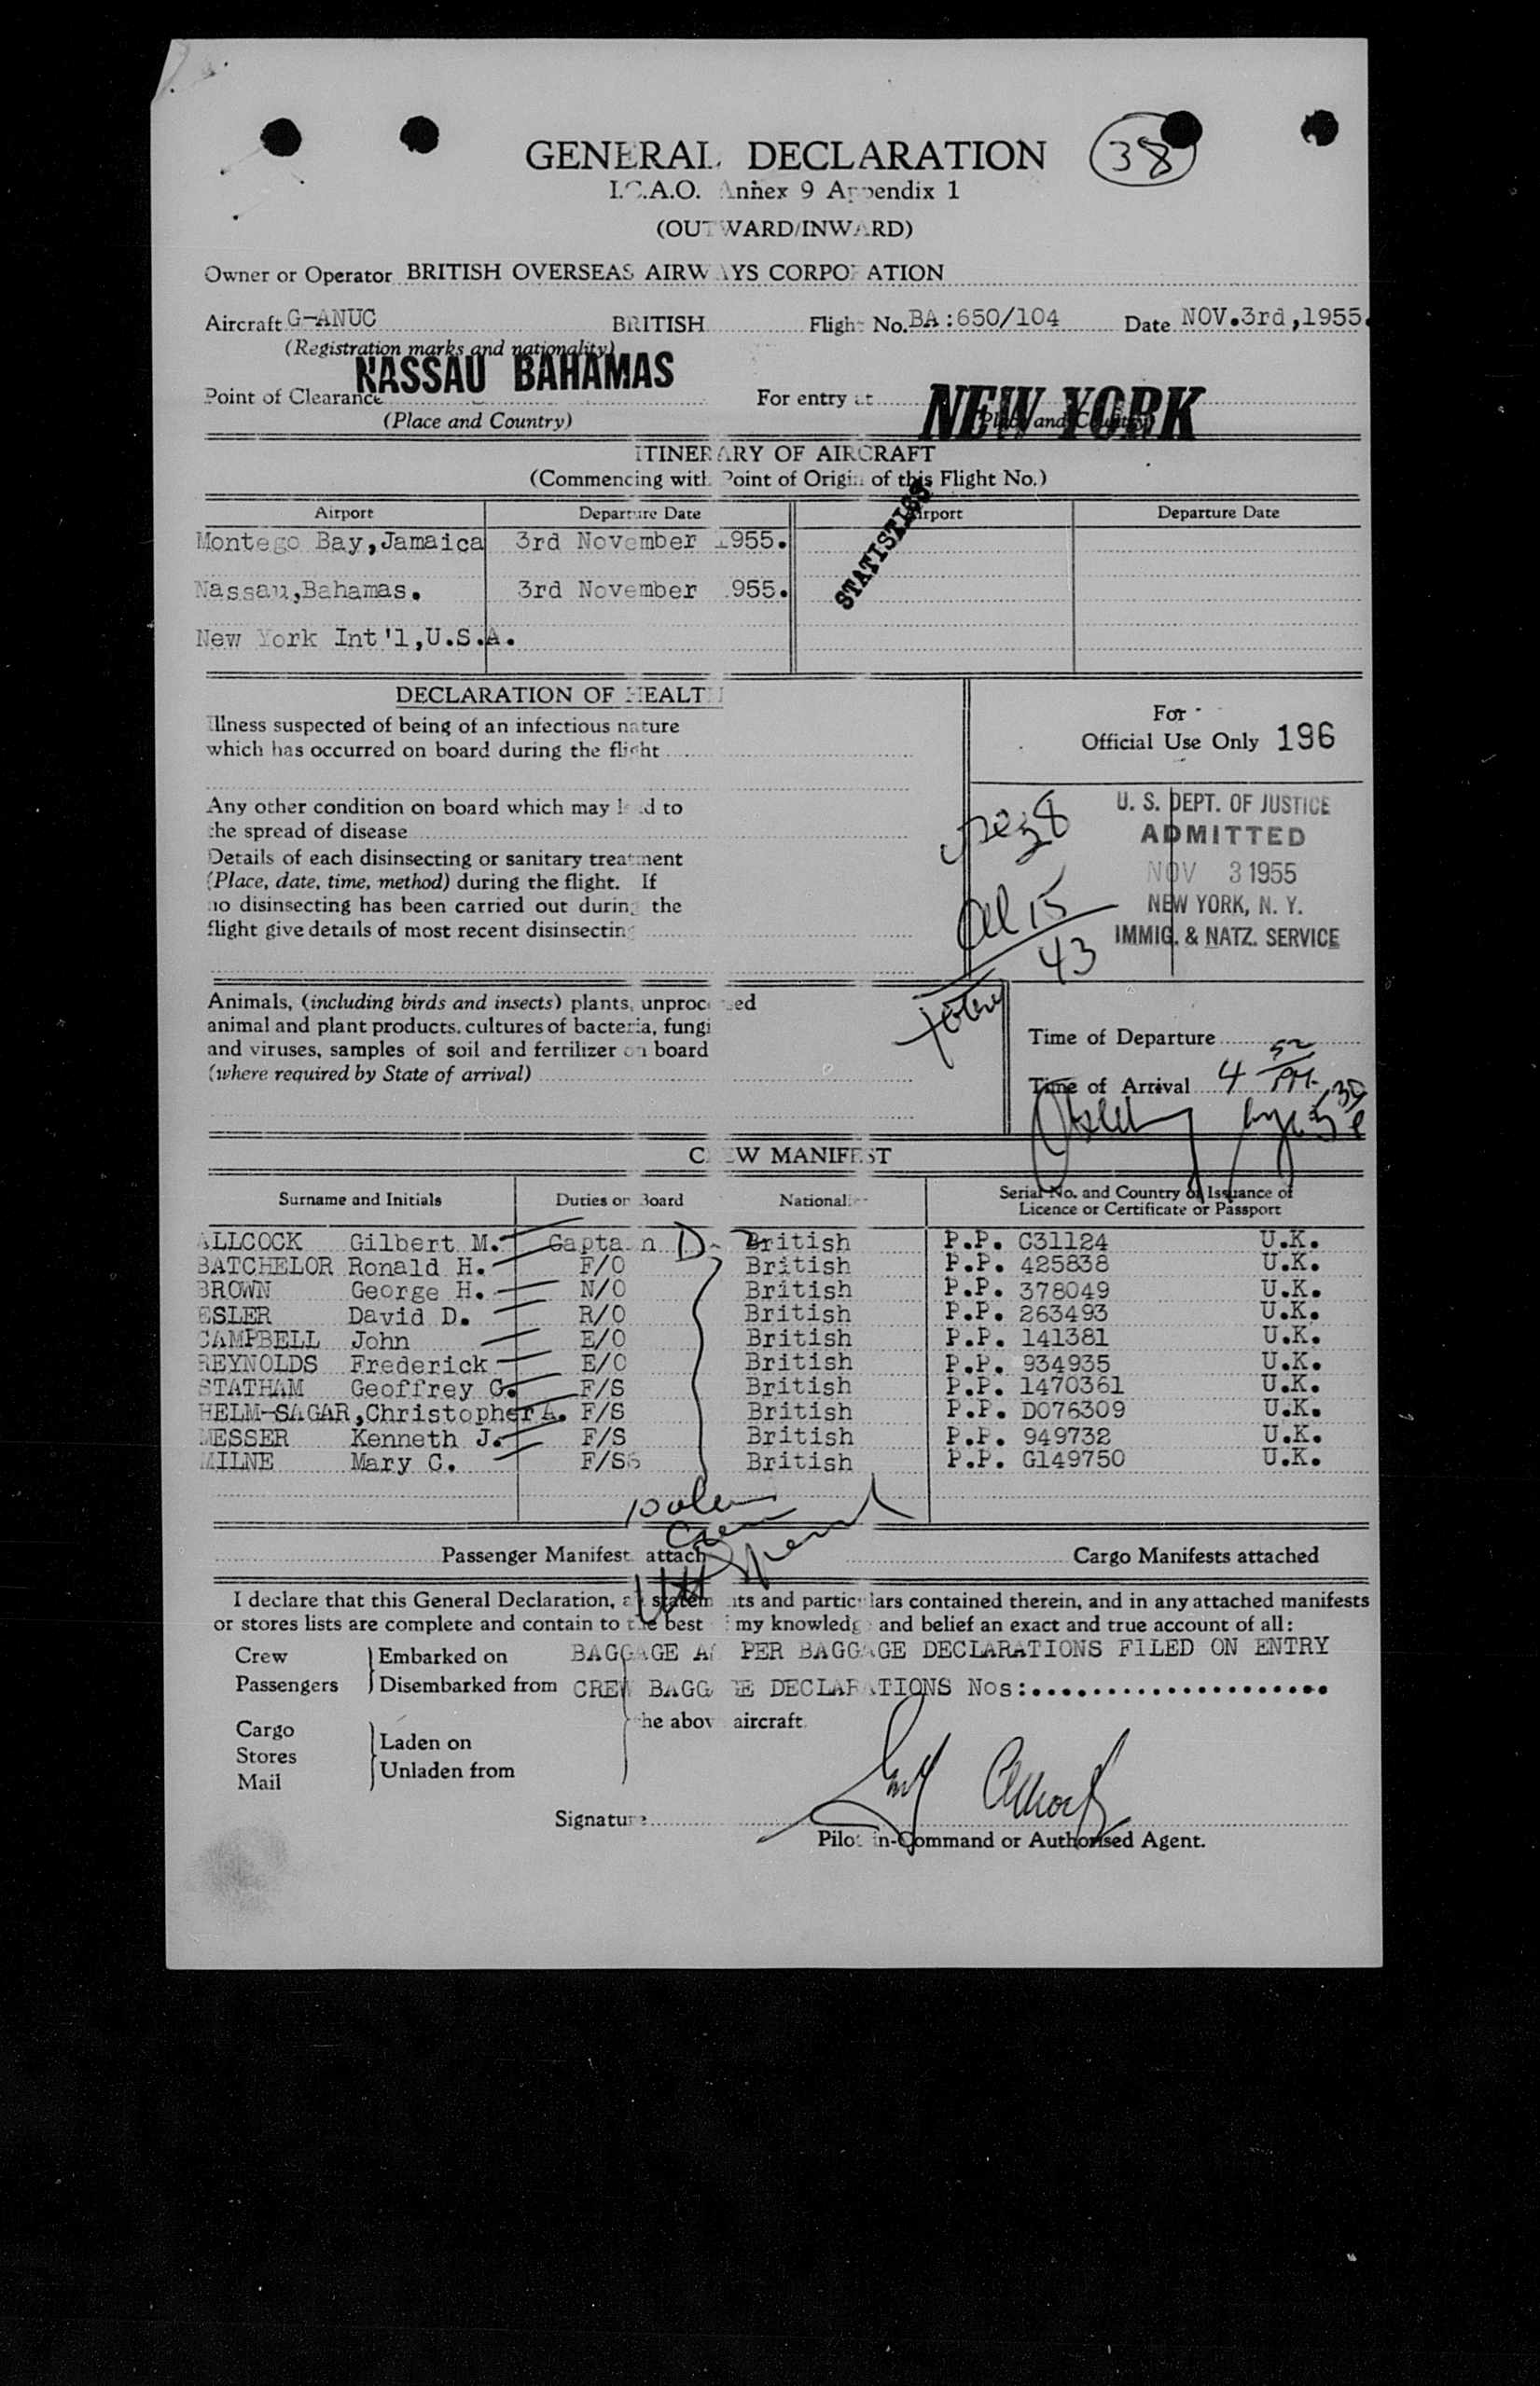 38
GENERAL DECLARATION
I.C.A.O. Annex 9 Appendix 1
(OUTWARD/INWARD)
Owner or Operator BRITISH OVERSEAS AIRWAYS CORPORATION
Aircraft G-ANUC BRITISH Flight No. BA:650/104 Date NOV.3rd,1955.
(Registration marks and nationality)
NASSAU BAHAMAS
Point of Clearance For entry at NEW YORK
(Place and Country) (Place and Country)
ITINERARY OF AIRCRAFT
(Commencing with Point of Origin of this Flight No.)
STATISTICS
Airport Departure Date Airport Departure Date
Montego Bay,Jamaica 3rd November 1955.
Nassau,Bahamas. 3rd November 1955.
New York Int'l,U.S.A.
DECLARATION OF HEALTH
Illness suspected of being of an infectious nature
which has occurred on board during the flight
Any other condition on board which may lead to
the spread of disease
Details of each disinsecting or sanitary treatment
(Place, date, time, method) during the flight. If
no disinsecting has been carried out during the
flight give details of most recent disinsecting
For
Official Use Only 196
U. S. DEPT. OF JUSTICE
ADMITTED
NOV 3 1955
NEW YORK, N. Y.
IMMIG. & NATZ. SERVICE
38
15
43
Animals, (including birds and insects) plants, unprocessed
animal and plant products, cultures of bacteria, fungi
and viruses, samples of soil and fertilizer on board
(where required by State of arrival)
Time of Departure
Time of Arrival 4 52 PM
CREW MANIFEST
Surname and Initials Duties on Board Nationality Serial No. and Country of Issuance of
Licence or Certificate or Passport
ALLCOCK Gilbert M. Captain British P.P. C31124 U.K.
BATCHELOR Ronald H. F/O British P.P. 425838 U.K.
BROWN George H. N/O British P.P. 378049 U.K.
ESLER David D. R/O British P.P. 263493 U.K.
CAMPBELL John E/O British P.P. 141381 U.K.
REYNOLDS Frederick E/O British P.P. 934935 U.K.
STATHAM Geoffrey G. F/S British P.P. 1470361 U.K.
HELM-SAGAR,Christopher A. F/S British P.P. D076309 U.K.
MESSER Kenneth J. F/S British P.P. 949732 U.K.
MILNE Mary C. F/SS British P.P. G149750 U.K.
Passenger Manifest attach Cargo Manifests attached
I declare that this General Declaration, all statements and particulars contained therein, and in any attached manifests
or stores lists are complete and contain to the best of my knowledge and belief an exact and true account of all:
Crew Embarked on BAGGAGE AS PER BAGGAGE DECLARATIONS FILED ON ENTRY
Passengers Disembarked from CREW BAGGAGE DECLARATIONS Nos:.....................
the above aircraft.
Cargo
Stores Laden on
Mail Unladen from
Signature
Pilot in-Command or Authorised Agent.